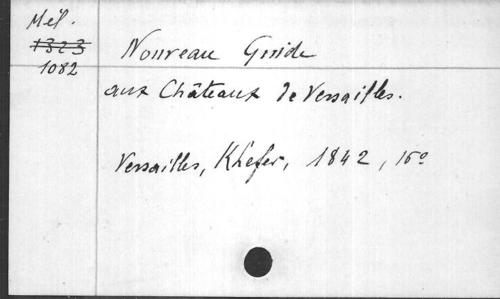 Mél.
1323
1082
Nouveau Guide
aux Châteaux de Versailles.
Versailles, Klefer, 1842, 16º